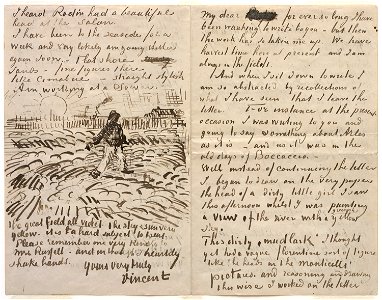 I heard Rodin had a beautiful
head at the Salon.
I have been to the seaside for a
week and very likely am going thither
again soon. - Flat shore
sands - fine figures there
like Cimabue - straight stylish
Am working at a Sower.
the great field all violet the sky & sun very
yellow. it is a hard subject to treat.
Please remember me very kindly to
Mrs Russell - and in thought I heartily
shake hands.
Yours very truly
Vincent
My dear for ever so long I have
been wanting to write to you - but then
the work has so taken me up. We have
harvest time here at present and I am
always in the fields.
And when I sit down to write I
am so abstracted by recollections of
what I have seen that I leave the
letter. For instance at the present
occasion I was writing to you and
going to say something about Arles
as it is - and as it was in the
old days of Boccaccio. -
Well instead of continuing the letter
I began to draw on the very paper
the head of a dirty little girl I saw
this afternoon whilst I was painting
a view of the river with a greenish yellow
sky.
This dirty "mudlark" I thought
yet had a vague florentine sort of figure
like the heads in the monticelli
pictures, and reasoning and drawing
this wise I worked on the letter